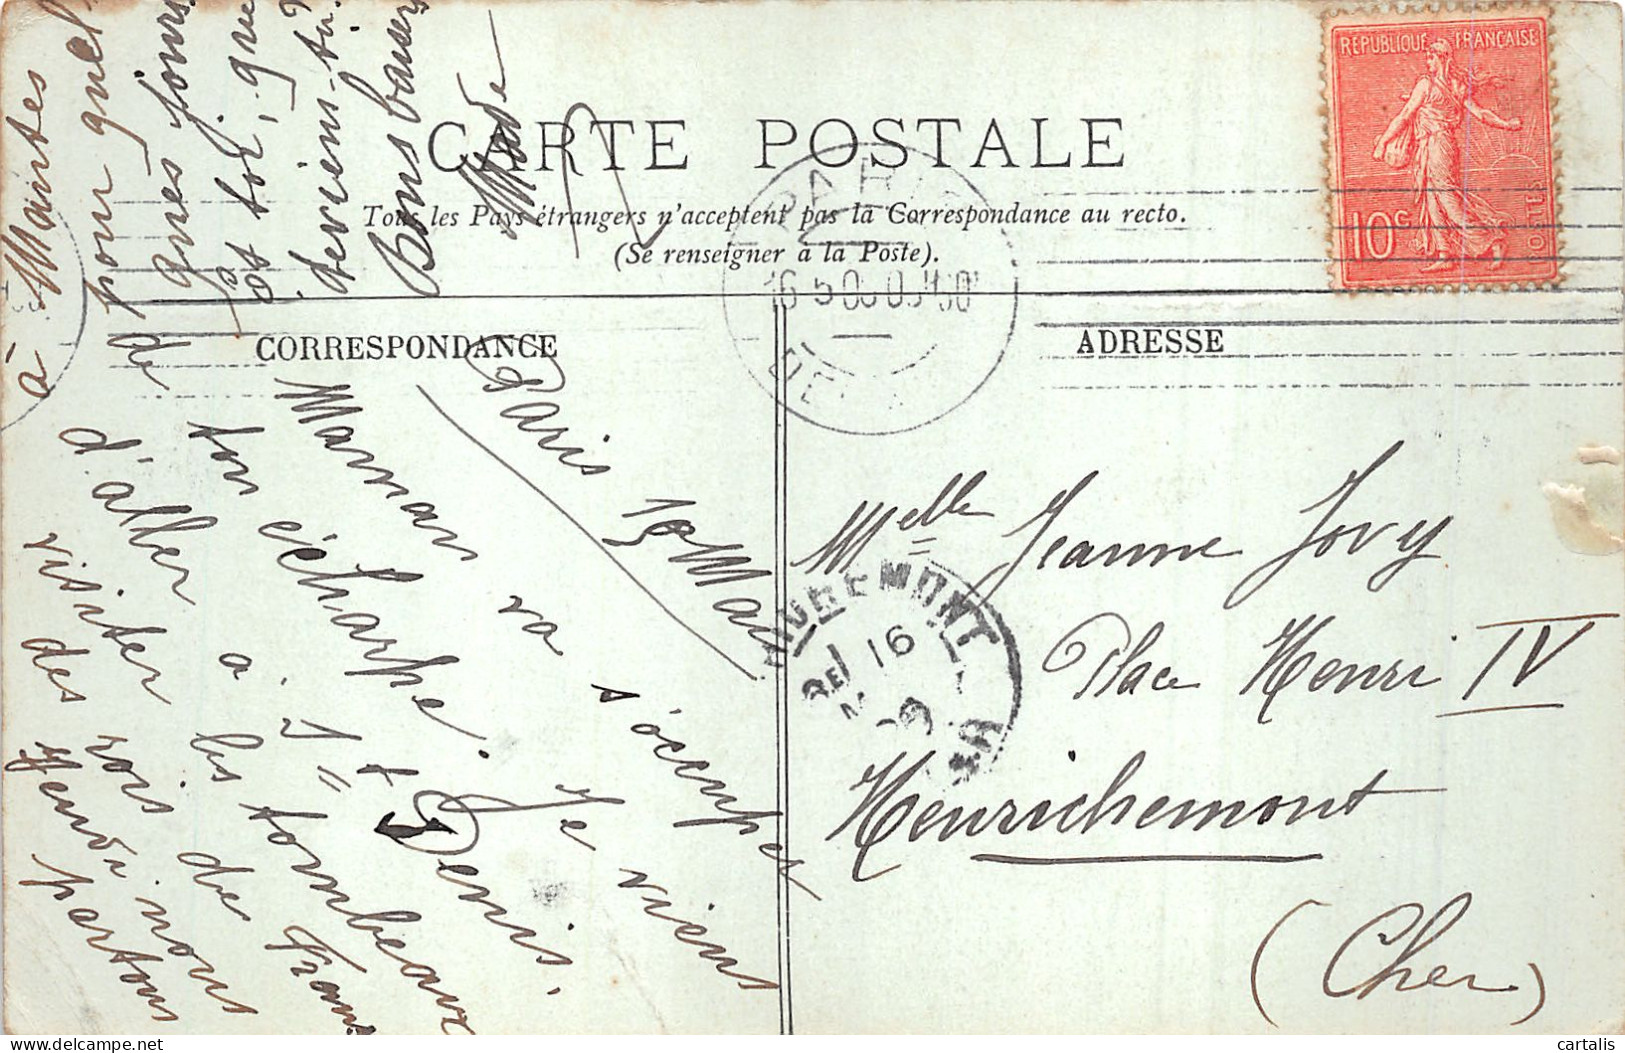 CARTE POSTALE
Tous les Pays étrangers n'acceptent pas la Correspondance au recto.
(Se renseigner à la Poste).
CORRESPONDANCE
ADRESSE
REPUBLIQUE FRANÇAISE
10c
POSTES
PARIS
HENRICHEMONT
16
CHER
Paris 15 Mai
Maman va s'occuper de
ton écharpe. Je viens
d'aller à St Denis
visiter les tombeaux
des rois de France
Jeudi nous partons
à Mantes
pour quel
ques jours
Et toi, que
deviens-tu?
Bons baisers
Melle Jeanne Jovy
Place Henri IV
Henrichemont
(Cher)
cartalis